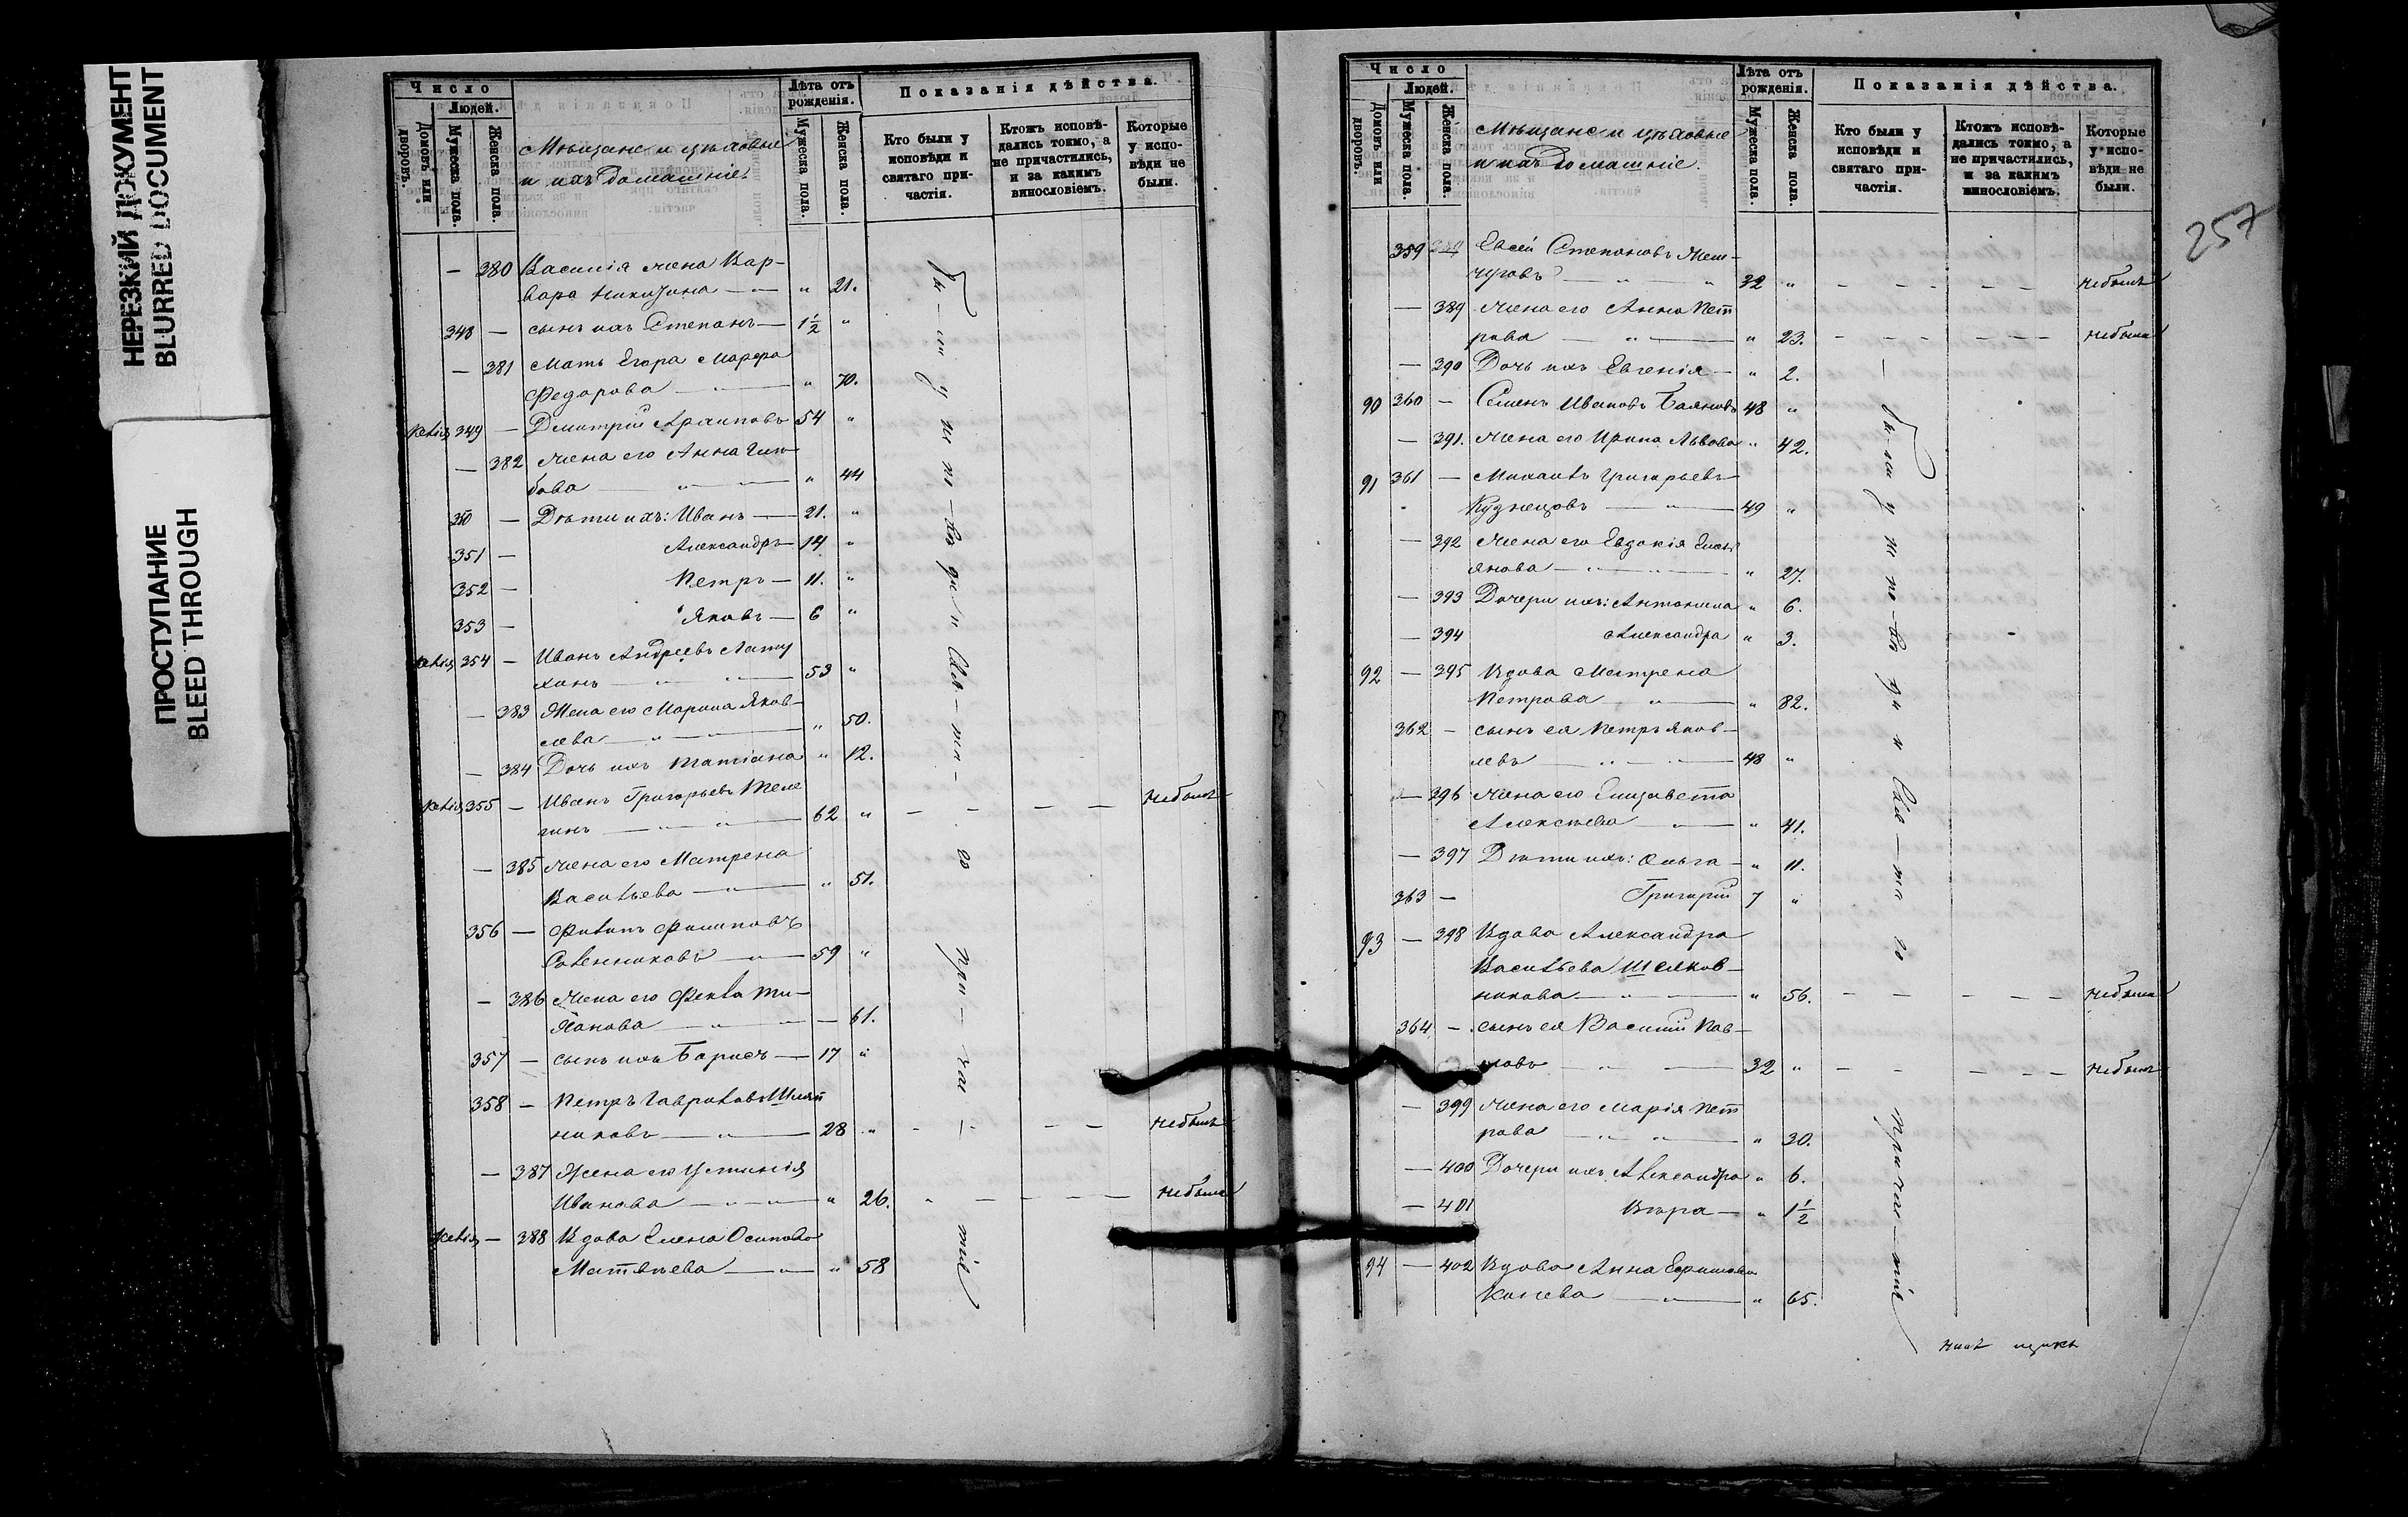 НЕРЕЗКИЙ ДОКУМЕНТ
BLURRED DOCUMENT
ПРОСТУПАНИЕ
BLEED THROUGH
Число
Людей.
Домовъ или дворовъ.
Мужеска пола.
Женска пола.
Мѣщане и цѣховые
и ихъ домашніе.
Лѣта отъ рожденія.
Мужеска пола.
Женска пола.
Показанія дѣйства.
Кто были у исповѣди и святаго причастія.
Ктожъ исповѣдались токмо, а не причастились, и за какимъ винословіемъ.
Которые у исповѣди не были.
— 380 Василія жена Вар-
вара Никитина — " 21.
348 — сынъ ихъ Степанъ — 1½ "
— 381 Мать Егора Марфа
Федорова — " 70.
349 — Дмитрій Архиповъ 54 "
— 382 жена его Анна Глѣ-
бова — " 44
350 — Дѣти ихъ: Иванъ — 21. "
351 — Александръ — 14. "
352 — Петръ — 11. "
353 — Яковъ — 6 "
354 — Иванъ Андреевъ Лату
хинъ — 53 "
— 383 Жена его Марина Яков-
лева — " 50.
— 384 Дочь ихъ Татіана " 12.
355 — Иванъ Григорьевъ Теле
гинъ — 62 " — — — небылъ
— 385 жена его Матрена
Васильева — " 51.
356 — Филипъ Филиповъ
59 "
— 386 жена его Фекла Ти-
ханова — — 61.
357 — сынъ ихъ Борисъ — 17 "
358 — Петръ Гавриловъ
никовъ — 28 " — — небылъ
— 387 Жена его Устинія
Иванова — " 26. — — — небыла
— 388 Вдова Елена Осипова
Матвѣева — " 58
257
Число
Людей.
Домовъ или дворовъ.
Мужеска пола.
Женска пола.
Мѣщане и цѣховые
и ихъ домашніе.
Лѣта отъ рожденія.
Мужеска пола.
Женска пола.
Показанія дѣйства.
Кто были у исповѣди и святаго причастія.
Ктожъ исповѣдались токмо, а не причастились, и за какимъ винословіемъ.
Которые у исповѣди не были.
359 Евсей Степановъ Жем-
чуговъ — 32 " — — — небылъ
— 389 жена его Анна Пет
рова — " 23. — — — небыла
— 390 Дочь ихъ Евгенія — " 2. —
90 360 — Семенъ Ивановъ Баяновъ 48 "
— 391. жена его Ирина Львова " 42.
91 361 — Михаилъ Григорьевъ
Кузнецовъ — 49 "
— 392 жена его Евдокія Емель
янова — " 27.
— 393 Дочери ихъ: Антонина " 6.
— 394 Александра " 3.
92 — 395 Вдова Матрена
Петрова — " 82.
362 — сынъ ея Петръ Яков-
левъ — 48 "
— 396 жена его Елизавета
Алексѣева — " 41.
— 397 Дѣти ихъ: Ольга — " 11.
363 — Григорій 7 "
93 — 398 Вдова Александра
Васильева Шелков-
никова — " 56. — — — небыла
364 — сынъ ея Василій Пав-
ловъ — 32 " — — — небылъ
— 399 жена его Марія Пет
рова — " 30.
— 400 Дочери ихъ Александра " 6.
— 401 Вѣра — " 1½
94 — 402 Вдова Анна Ефимова
Конева — " 65.